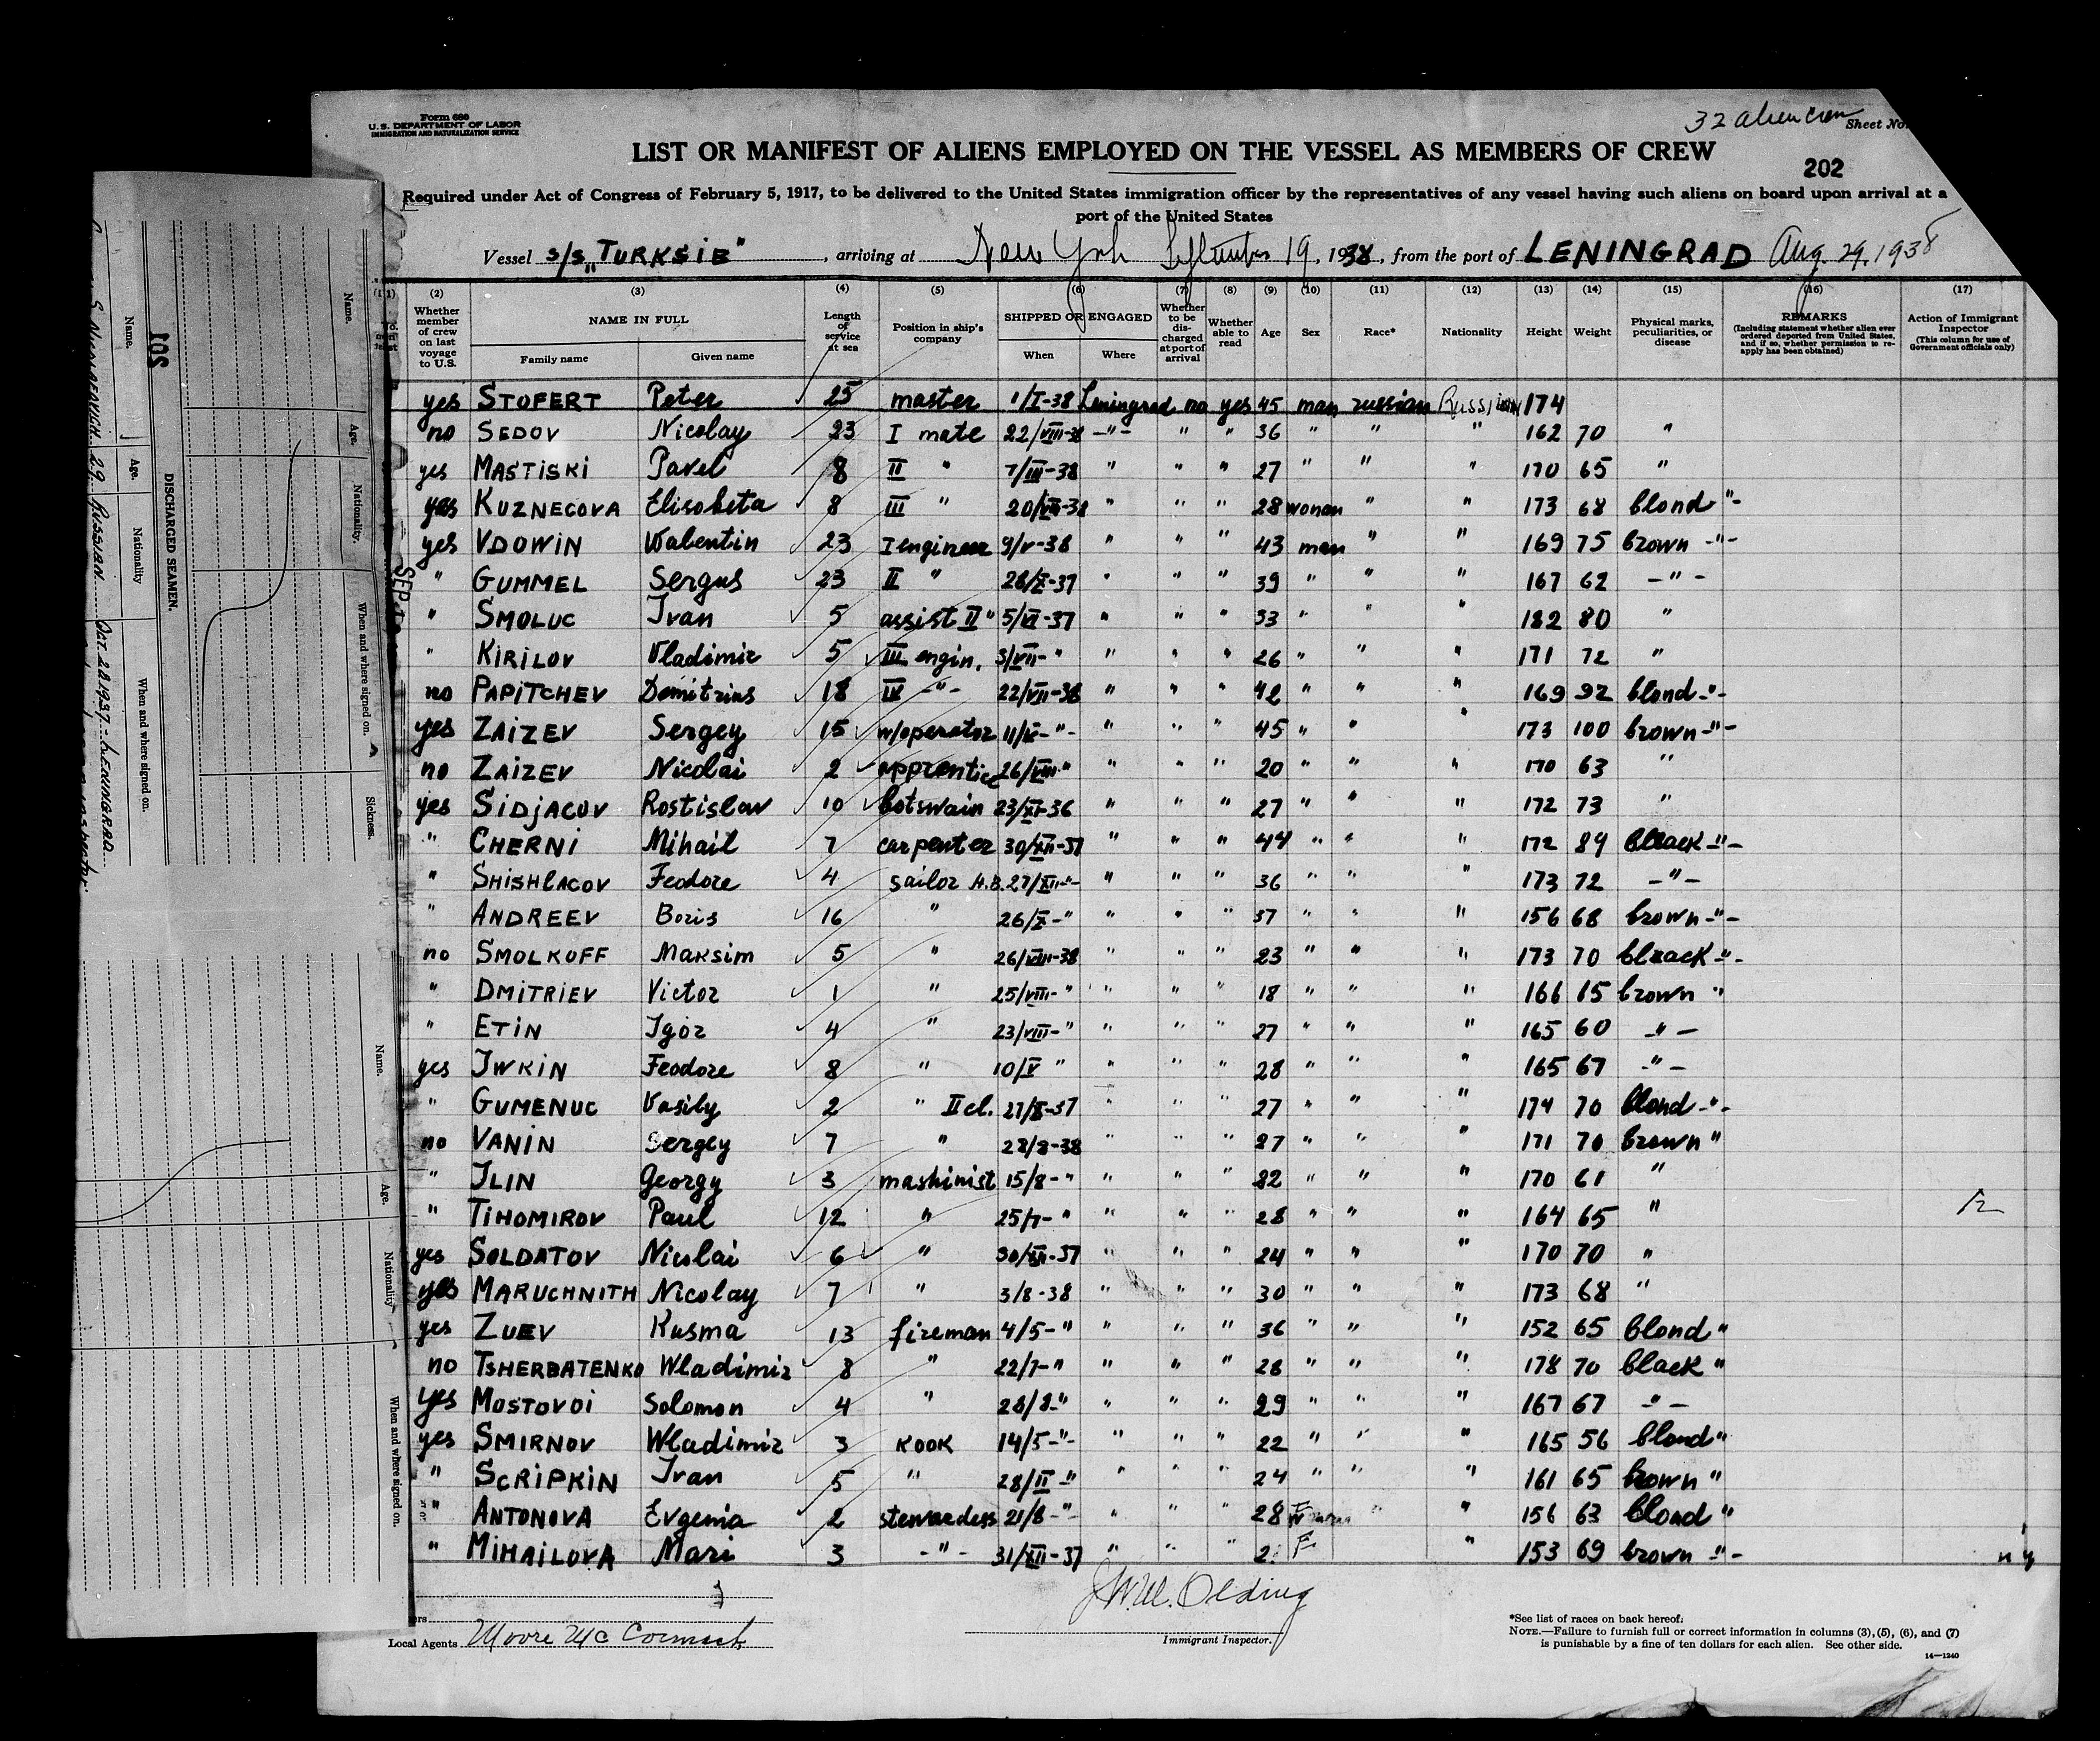 Form 680
U. S. DEPARTMENT OF LABOR
IMMIGRATION AND NATURALIZATION SERVICE
32 alien crew Sheet No.
LIST OR MANIFEST OF ALIENS EMPLOYED ON THE VESSEL AS MEMBERS OF CREW
202
Required under Act of Congress of February 5, 1917, to be delivered to the United States immigration officer by the representatives of any vessel having such aliens on board upon arrival at a
port of the United States
Vessel s/s „TURKSIB", arriving at New York September 19, 1938, from the port of LENINGRAD Aug. 29, 1938
(2) (3) (4) (5) (6) (7) (8) (9) (10) (11) (12) (13) (14) (15) (16) (17)
Whether member of crew on last voyage to U.S. NAME IN FULL Family name Given name Length of service at sea Position in ship's company SHIPPED OR ENGAGED When Where Whether to be discharged at port of arrival Whether able to read Age Sex Race* Nationality Height Weight Physical marks, peculiarities, or disease REMARKS (Including statement whether alien ever ordered deported from United States, and if so, whether permission to reapply has been obtained) Action of Immigrant Inspector (This column for use of Government officials only)
yes STOFERT Peter 25 master 1/I-38 Leningrad no yes 45 man russian Russian 174
no SEDOV Nicolay 23 I mate 22/VIII-38 -"- " " 36 " " " 162 70 "
yes MASTISKI Pavel 8 II " 7/III-38 " " " 27 " " " 170 65 "
yes KUZNECOVA Elisobeta 8 III " 20/VII-38 " " " 28 woman " " 173 68 blond "-
yes VDOWIN Walentin 23 I engineer 9/V-38 " " " 43 man " " 169 75 brown -"-
" GUMMEL Sergus 23 II " 28/X-37 " " " 39 " " " 167 62 -"-
" SMOLUC Ivan 5 assist II " 5/VI-37 " " " 33 " " " 182 80 "
" KIRILOV Vladimir 5 III engin. 3/VII- " " " " 26 " " " 171 72 "
no PAPITCHEV Demitrius 18 IV -"- 22/VII-38 " " " 42 " " " 169 92 blond -"-
yes ZAIZEV Sergey 15 w/operator 11/IX-"- " " " 45 " " " 173 100 brown -"-
no ZAIZEV Nicolai 2 apprentice 26/VIII " " " " 20 " " " 170 63 "
yes SIDJACOV Rostislav 10 botswain 23/XI-36 " " " 27 " " " 172 73 "
" CHERNI Mihail 7 carpenter 30/XII-37 " " " 44 " " " 172 89 black -"-
" SHISHLACOV Feodore 4 sailor H.B. 27/XII-"- " " " 36 " " " 173 72 -"-
" ANDREEV Boris 16 " 26/X-" " " " 37 " " " 156 68 brown -"-
no SMOLKOFF Maksim 5 " 26/VIII-38 " " " 23 " " " 173 70 black -"-
" DMITRIEV Victor 1 " 25/VIII-" " " " 18 " " " 166 65 brown "
" ETIN Igor 4 " 23/VIII-" " " " 27 " " " 165 60 -"-
yes IWKIN Feodore 8 " 10/V " " " " 28 " " " 165 67 -"-
" GUMENUC Vasily 2 " II cl. 27/X-37 " " " 27 " " " 174 70 blond -"-
no VANIN Sergey 7 " 28/8-38 " " " 27 " " " 171 70 brown "
" ILIN Georgy 3 mashinist 15/8-" " " " 22 " " " 170 61 "
" TIHOMIROV Paul 12 " 25/7-" " " " 28 " " " 164 65 "
yes SOLDATOV Nicolai 6 " 30/XII-37 " " " 24 " " " 170 70 "
yes MARUCHNITH Nicolay 7 " 3/8-38 " " " 30 " " " 173 68 "
yes ZUEV Kusma 13 fireman 4/5-" " " " 36 " " " 152 65 blond "
no TSHERBATENKO Wladimir 8 " 22/7-" " " " 28 " " " 178 70 black "
yes MOSTOVOI Solomon 4 " 28/8-" " " " 29 " " " 167 67 -"-
yes SMIRNOV Wladimir 3 KOOK 14/5-"- " " " 22 " " " 165 56 blond "
" SCRIPKIN Ivan 5 " 28/II-" " " " 24 " " " 161 65 brown "
" ANTONOVA Evgenia 2 stewardess 21/8-"- " " " 28 F " " 156 63 blond "
" MIHAILOVA Mari 3 -"- 31/XII-37 " " " F " 153 69 brown -"-
Local Agents Moore McCormack
J.W.M. Olding
Immigrant Inspector.
*See list of races on back hereof.
NOTE.—Failure to furnish full or correct information in columns (3), (5), (6), and (7)
is punishable by a fine of ten dollars for each alien. See other side.
14—1240
201
DISCHARGED SEAMEN.
Name. Age. Nationality When and where signed on.
29 RUSSIAN OCT. 28 1937 - LENINGRAD
Name. Age. Nationality. When and where signed on. Sickness.
Name. Age. Nationality When and where signed on.
SEP